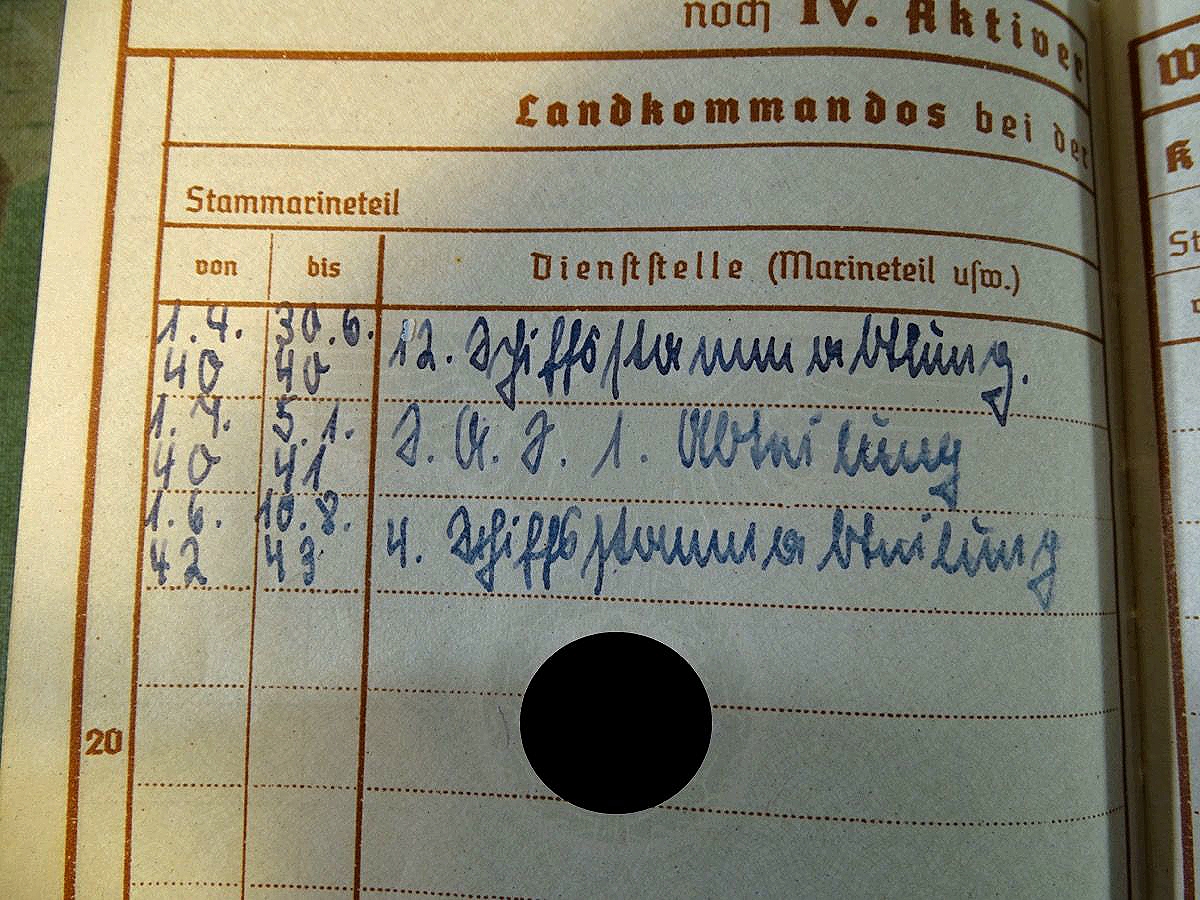 noch IV. Aktiver
Landkommandos bei der
Stammarineteil
von bis Dienststelle (Marineteil usw.)
1.4. 30.6. 12. Schiffsstammabtlung.
40 40
1.7. 5.1. S. A. S. 1. Abteilung
40 41
1.6. 10.8. 4. Schiffsstammabteilung
42 43
20
W
K
St